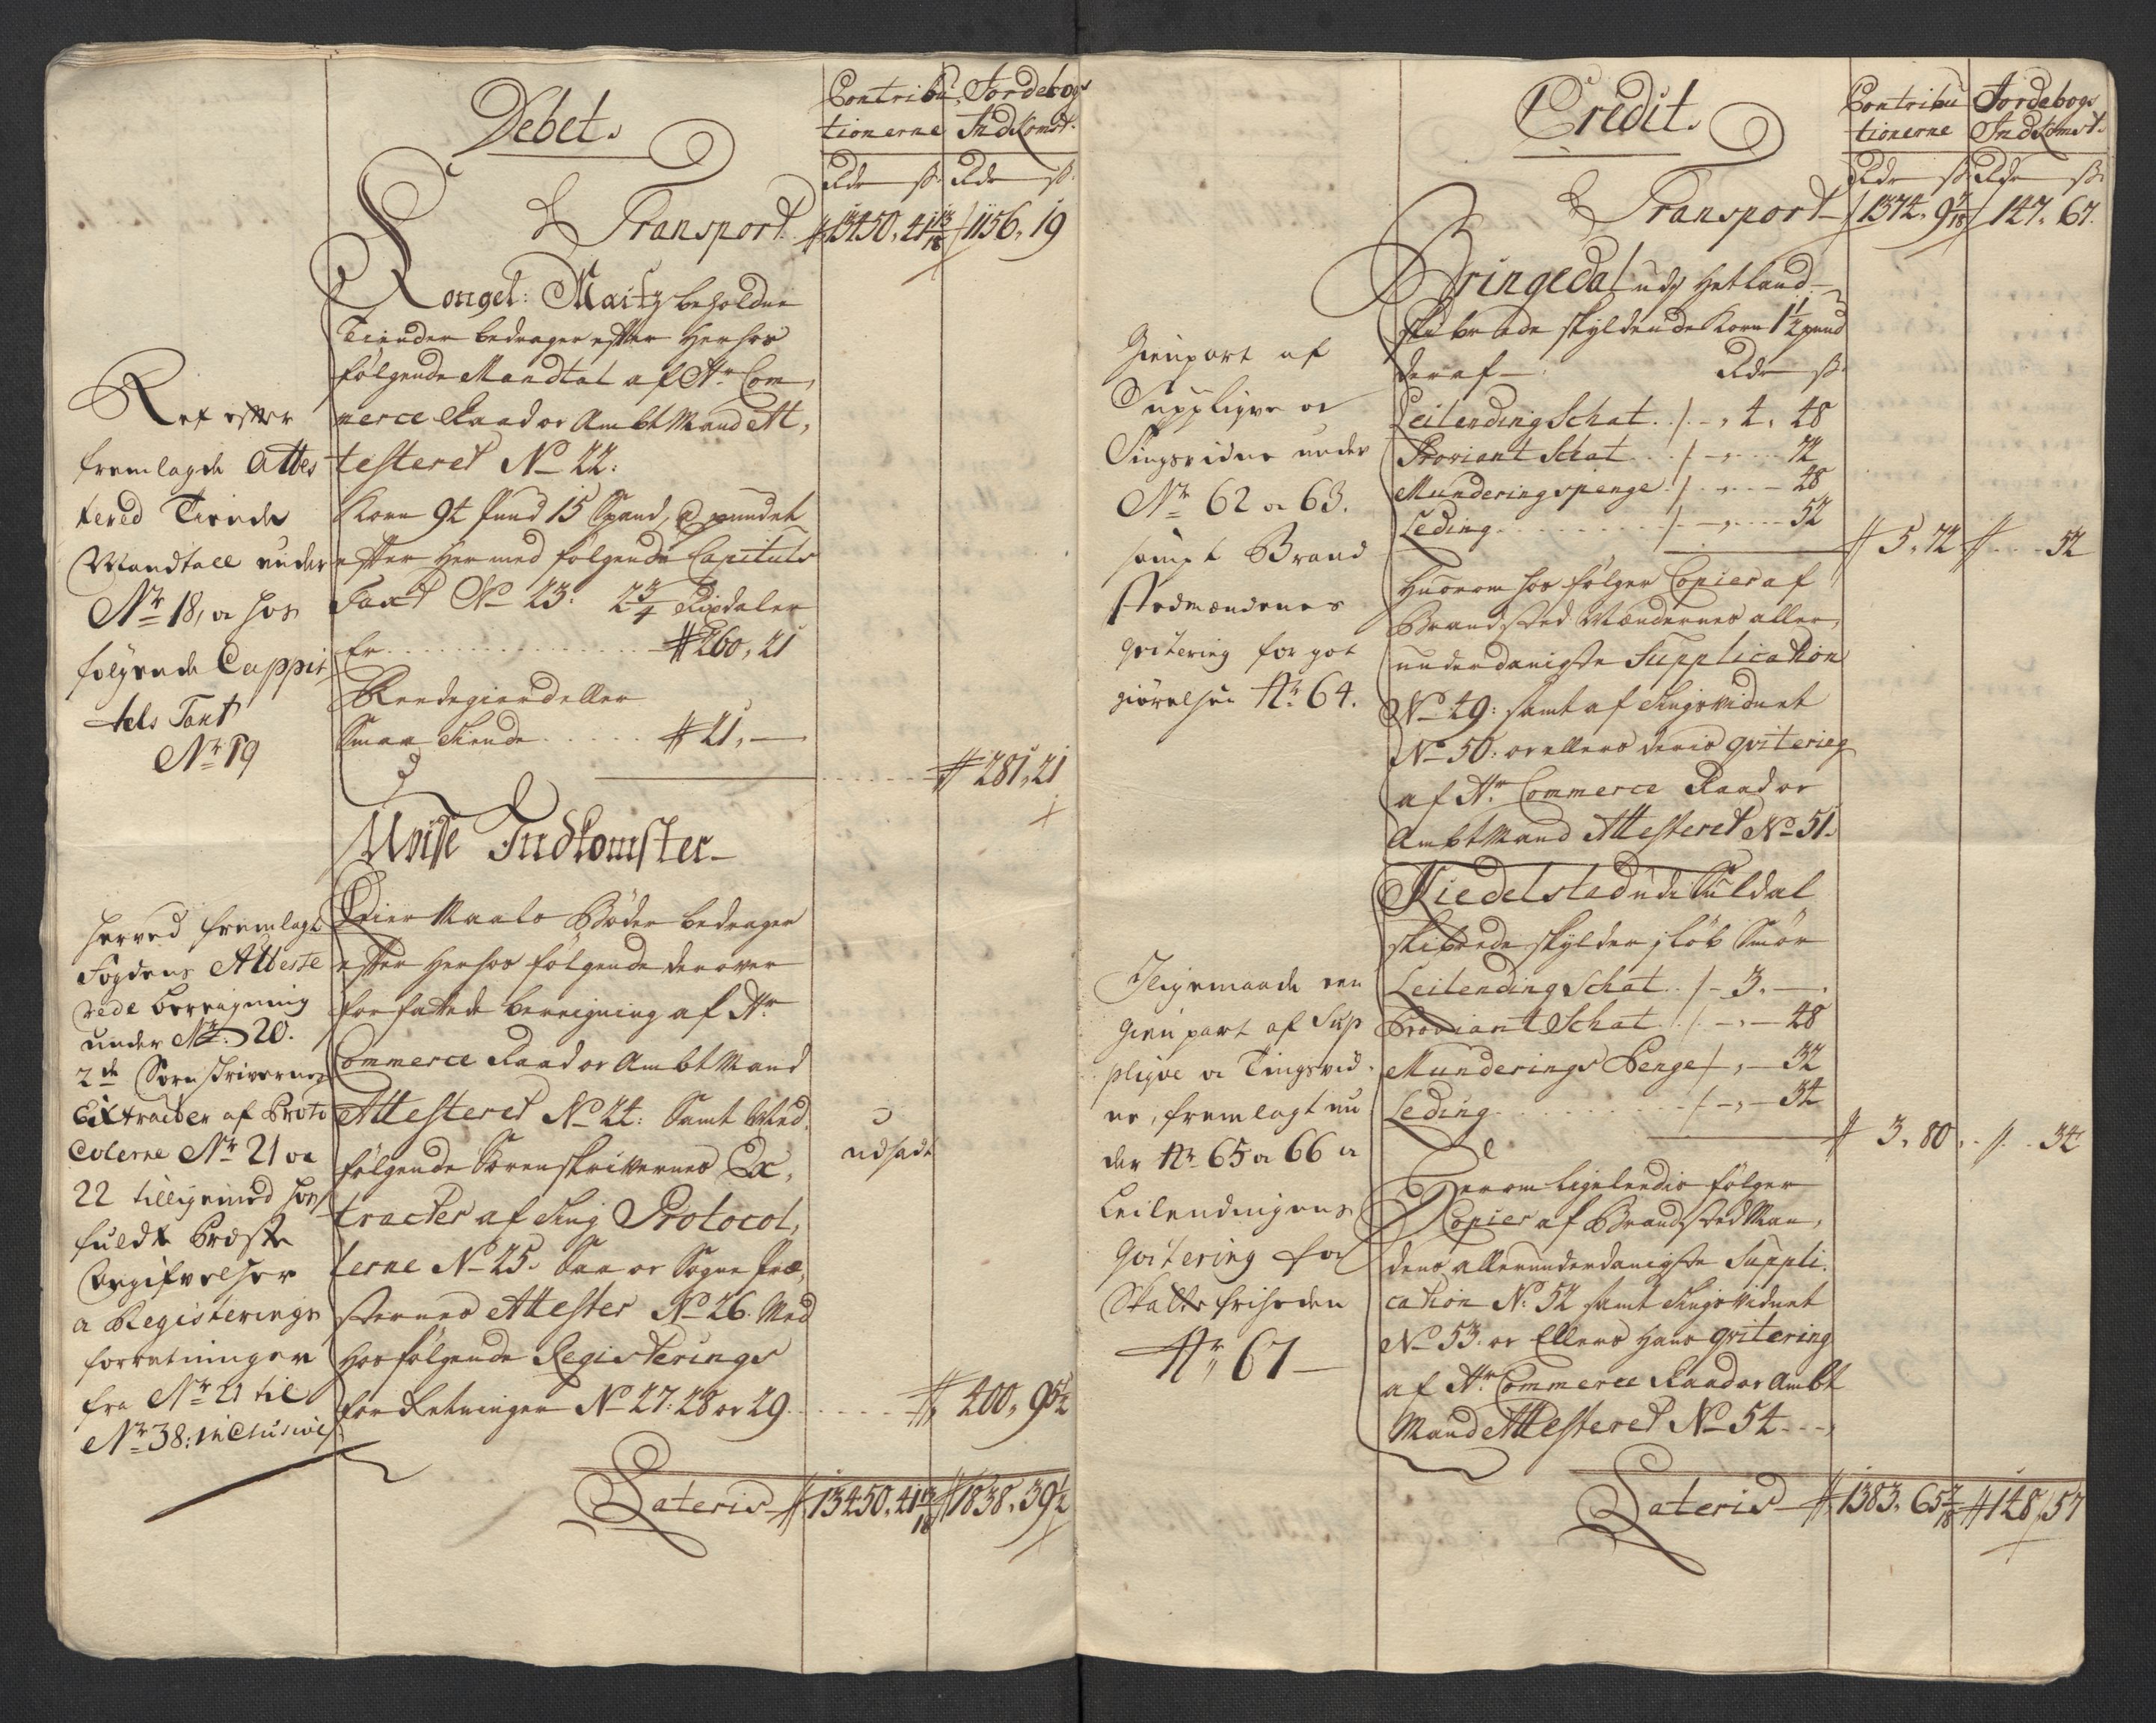 Debet.
Contribu
tionerne
Jordebogs
Indkomst.
Rdr ß. Rdr ß.
Transport
13450, 41 13/18 1156, 19
Kongel: Maitz beholdne
Tiender bedrager efter herhos
følgende Mandtal af Hr Com,
merce Raad og AmbtMand At,
testeret No 22:
Korn 94 Pund 15 Spand, a pundet
efter hermed følgende Capituls
Taxt No 23: 2 3/4 Rixdaler
Er 260, 21
Smaa Tiende 21, —
281, 21
Ref efter
fremlagde Attes
tered Tiende
Mandtall under
Nr 18, og hos
følgende Cappit
tels Taxt
Nr 19
Uvisse Indkomster
Leier Maals Bøder bedrager
efter herhos følgende derover
forfattede bereigning af Hr
Commerce Raad og AmbtMand
Attesteret No 24: Samt Med
følgende Sorenskrivernes Ex,
tracter af Ting Protocol,
lerne No 25. Saa og Sogne Præ,
sternes Attester No 26. Med
Hosfølgende Registerings
forRetninger No 27: 28 og 29.
400, 9 1/2
udsadt
herved fremlagt
Fogdens Atteste
rede beregning
under Nr 20.
2de Sornskrivernes
Extracter af Proto
Colerne Nr 21 og
22 tilligemed hos
fuldte Præste
Angifvelser
a Registerings
forretninger
fra Nr 21 til
Nr 38: inclusive
Lateris 13450, 41 13/18 1838, 39 1/2
Credit.
Contribu
tionerne
Jordebogs
Indkomst.
Rdr ß. Rdr ß.
Transport 1374, 9 7/18 147, 67.
Bringedal udj Hetland
skibrede skyldende Korn 1 1/2 pund
deraf — Rdr ß.
Leilending Schat. 4, 48
Proviant Schat 72
Munderings penge 48
Leding 52
5, 72 52
Huorom hos følger Copier af
Brandsted Mændernes aller,
underdanigste Supplication
No 49: samt af Tingsvidnet
No 50. og ellers deris qvitering
af Hr Commerce Raad og
AmbtMand Attesteret No 51.
Gienpart af
Suppliqve og
Tingsvidne under
Nr 62 og 63.
sampt Brand
stedmændenes
qvitering for got
giørelsen Nr 64.
Kiedelsted udi Suldal
skibrede skylder j løb Smør
Leilending Schat 3. —
Proviant Schat 48
Munderings Penge 32
Leding 34
3, 80 34.
Herom ligeleedis følger
Copier af Brandsted Man,
dens allerunderdanigste Suppli,
cation No. 52 samt Tingsvidnet
No 53. og Ellers hans qvitering
af Hr Commerce Raad og Ambt
Mand Attesteret No 54
Iligemaade een
gienpart af Sup
pliqve og Tingsvid
ne, fremlagt un
der Nr 65 og 66 og
Leilendingens
qvitering for
Skatte friheden
Nr 67 —
Lateris 1383, 65 7/18 148, 57